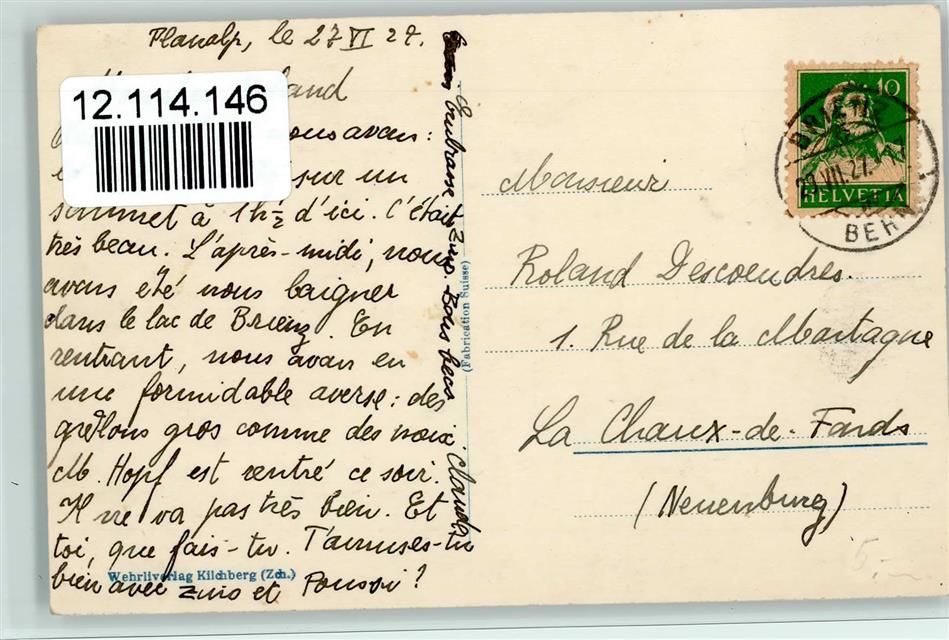 Planalp, le 27 VI 27.
12.114.146
ous avons:
sur un
sommet à 1h½ d'ici. C'était
très beau. L'après-midi, nous
avons été nous baigner
dans le lac de Brienz. En
rentrant, nous avons eu
une formidable averse: des
grêlons gros comme des noix.
M. Hopf est rentré ce soir.
Il ne va pas très bien. Et
toi, que fais-tu. T'amuses-tu
bien avec Zino et Poussi?
embrasse Zino. Bons becs
Claude
Wehrliverlag Kilchberg (Zch.)
(Fabrication Suisse)
10
HELVETIA
BRIENZ
29.VII.27.
BERN
Monsieur
Roland Descoendres.
1. Rue de la Montagne
La Chaux-de-Fonds
(Neuenburg)
5.-